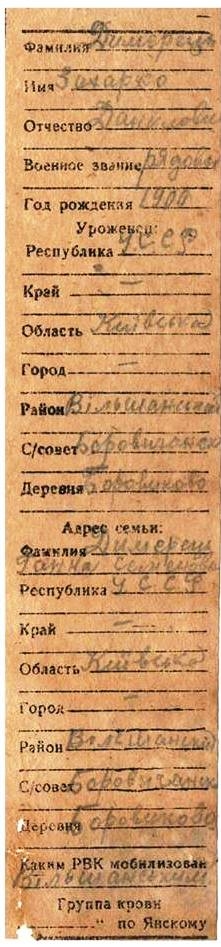 Фамилия Димерец
Имя Захарко
Отчество Данилови
Военное звание рядовы
Год рождения 1900
Уроженец:
Республика УССР
Край —
Область Київська
Город —
Район Вільшанськ
С/совет Боровиганск
Деревня Боровиково
Адрес семьи:
Фамилия Димерец
Ганна
Республика УССР
Край —
Область Київська
Город —
Район Вільшанськ
С/совет Боровиганск
Деревня Боровиково
Каким РВК мобилизован
Вільшанським
Группа крови
" по Янскому